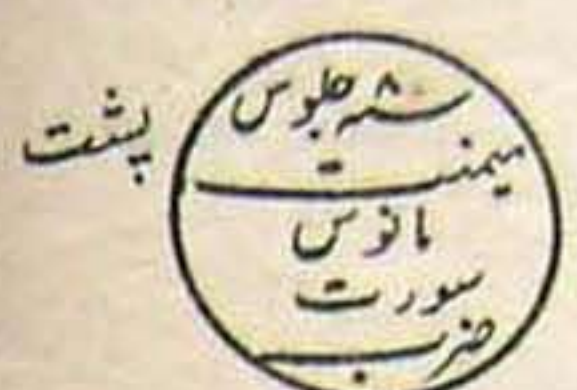 پشت
سنہ ۸ جلوس
میمنت
مانوس
سورت
ضرب